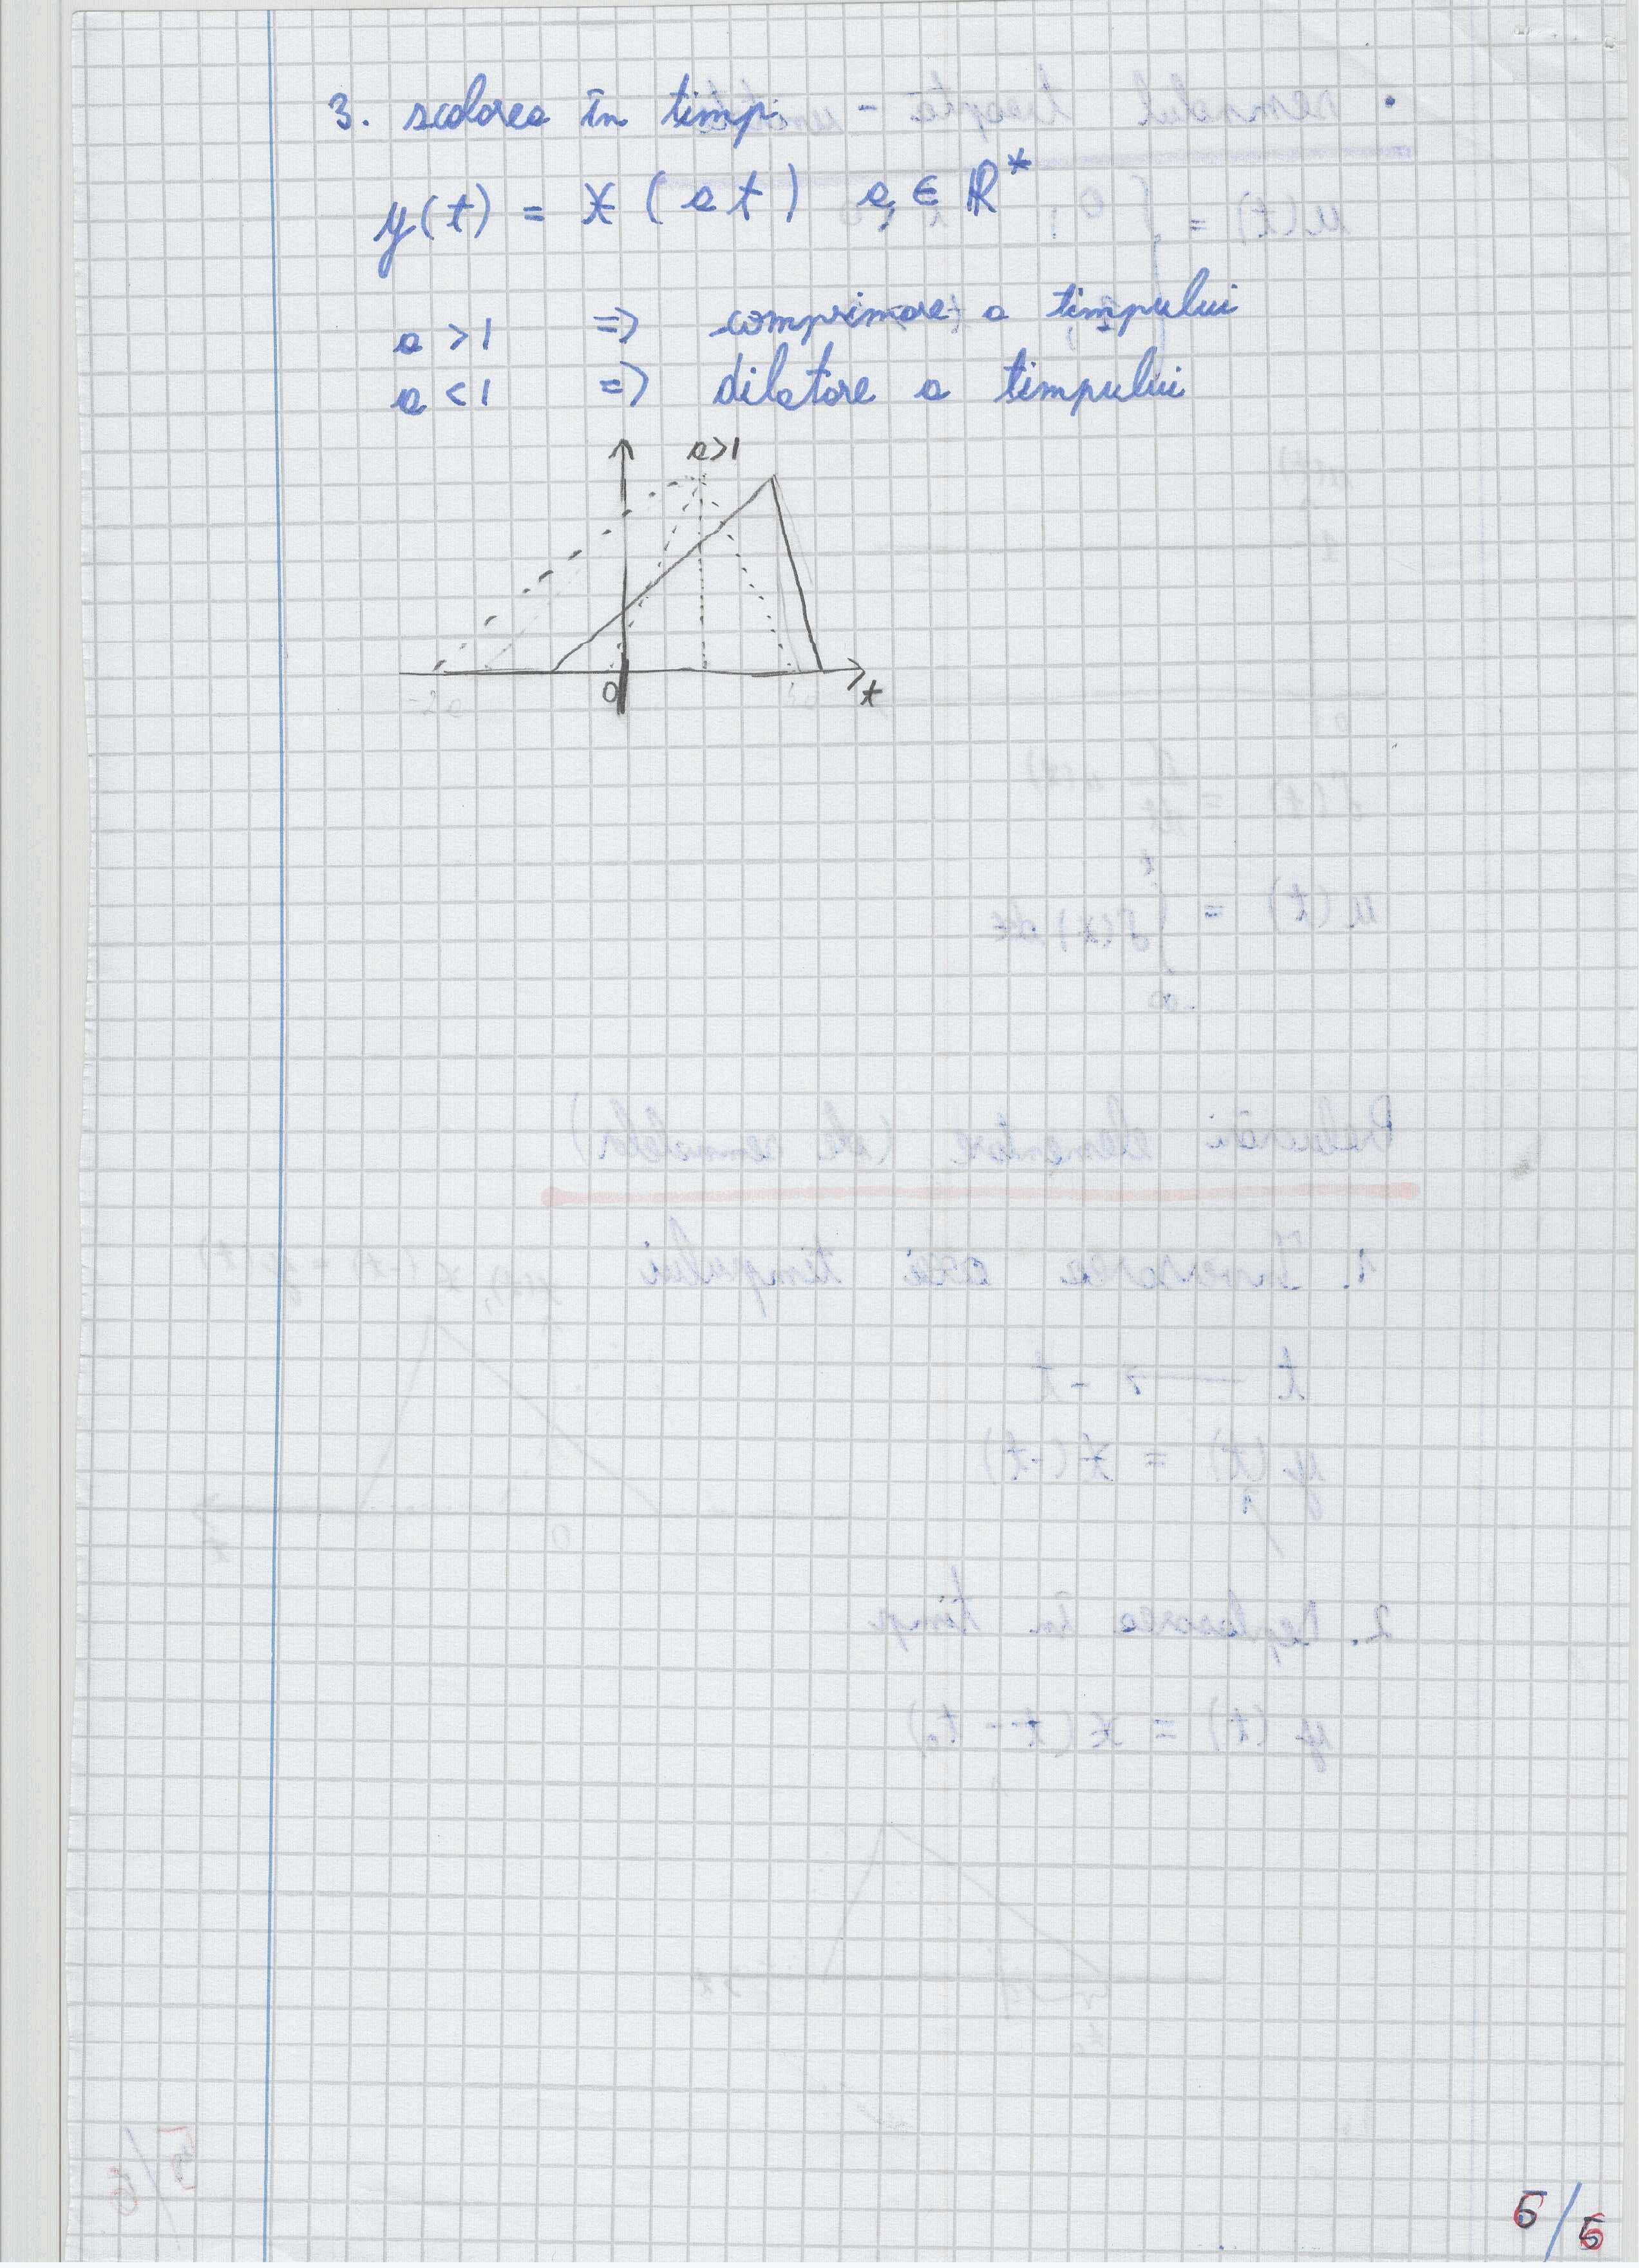 3. scalarea în timp
y(t) = x(at) , a ∈ ℝ*
a > 1 => comprimare a timpului
a < 1 => dilatare a timpului
a>1
0
t
6/6